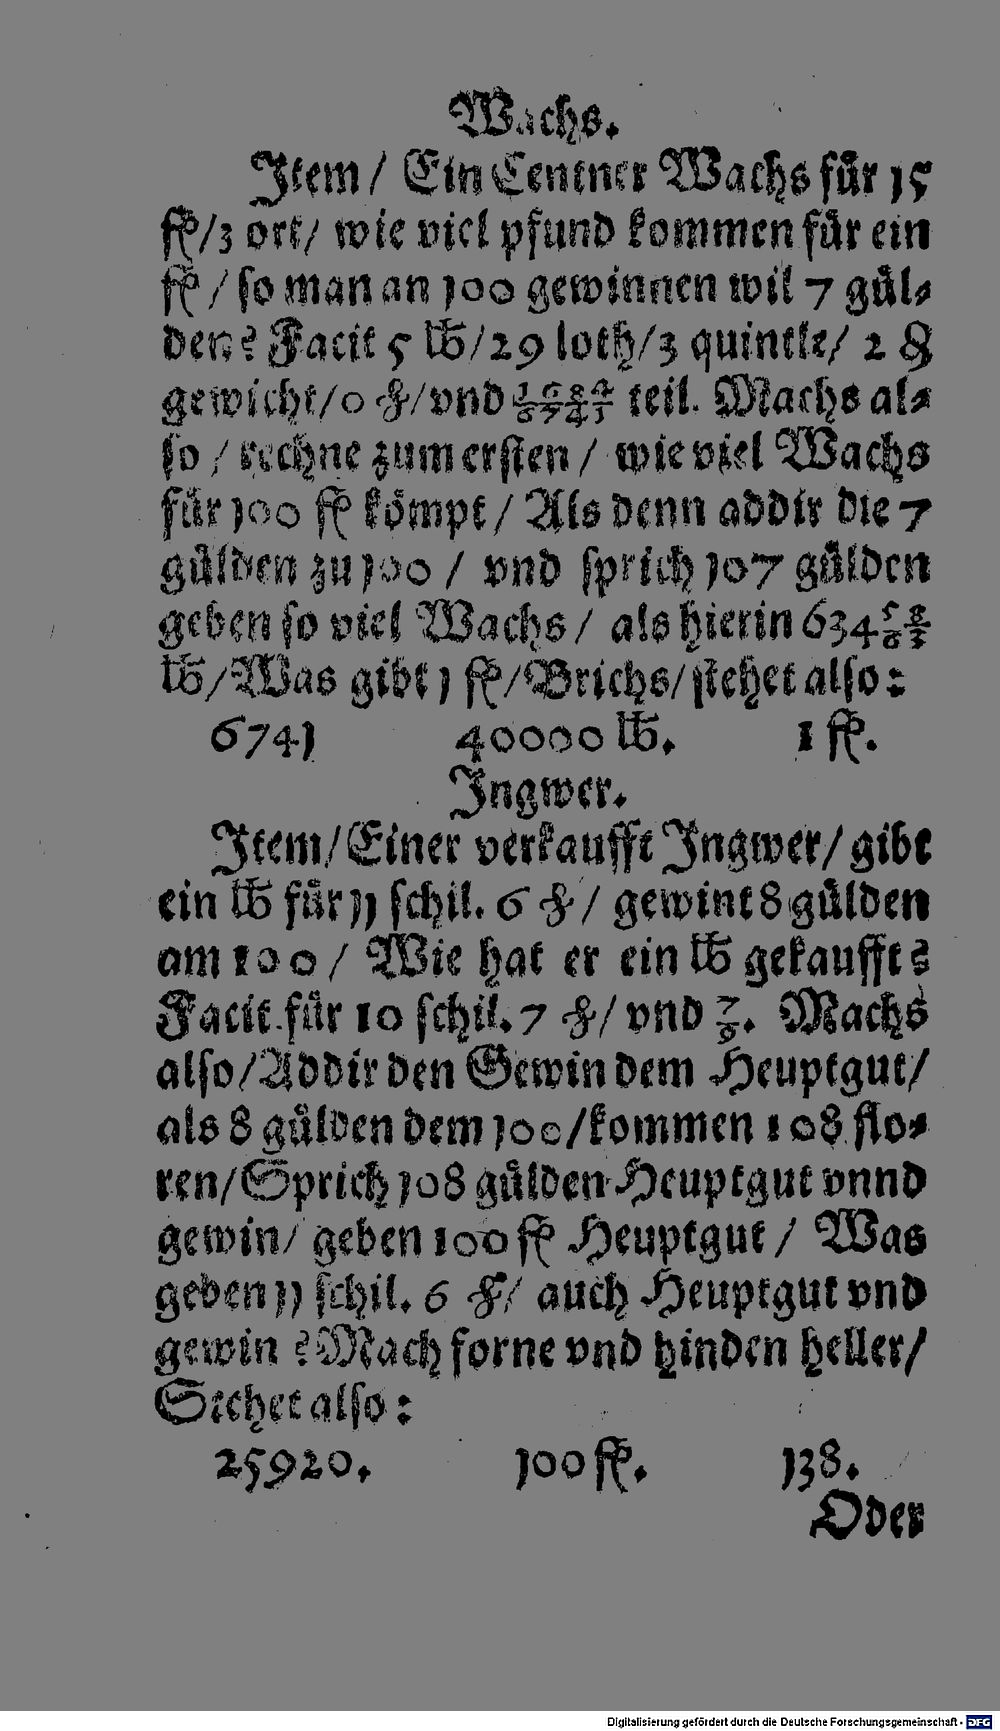 Wachs.
Item / Ein Centner Wachs für 15
fl/3 ort/ wie viel pfund kommen für ein
fl / so man an 100 gewinnen wil 7 gül⸗
den? Facit 5 ℔/29 loth/3 quintle/ 2 ₰
gewicht/0 h/vnd 1684/6741 teil. Machs al⸗
so / rechne zum ersten / wie viel Wachs
für 100 fl kömpt / Als denn addir die 7
gülden zu 100 / vnd sprich 107 gülden
geben so viel Wachs / als hierin 634 58/63
℔/Was gibt 1 fl/Brichs/stehet also:
6741 40000 ℔. 1 fl.
Ingwer.
Item/Einer verkaufft Ingwer/ gibt
ein ℔ für 11 schil. 6 h/ gewint 8 gülden
am 100 / Wie hat er ein ℔ gekaufft?
Facit für 10 schil. 7 h/ vnd 7/9. Machs
also/Addir den Gewin dem Heuptgut/
als 8 gülden dem 100/kommen 108 flo⸗
ren/Sprich 108 gülden Heuptgut vnnd
gewin/ geben 100 fl Heuptgut / Was
geben 11 schil. 6 h/ auch Heuptgut vnd
gewin? Mach forne vnd hinden heller/
Stehet also:
25920. 100 fl. 138.
Oder
Digitalisierung gefördert durch die Deutsche Forschungsgemeinschaft - DFG